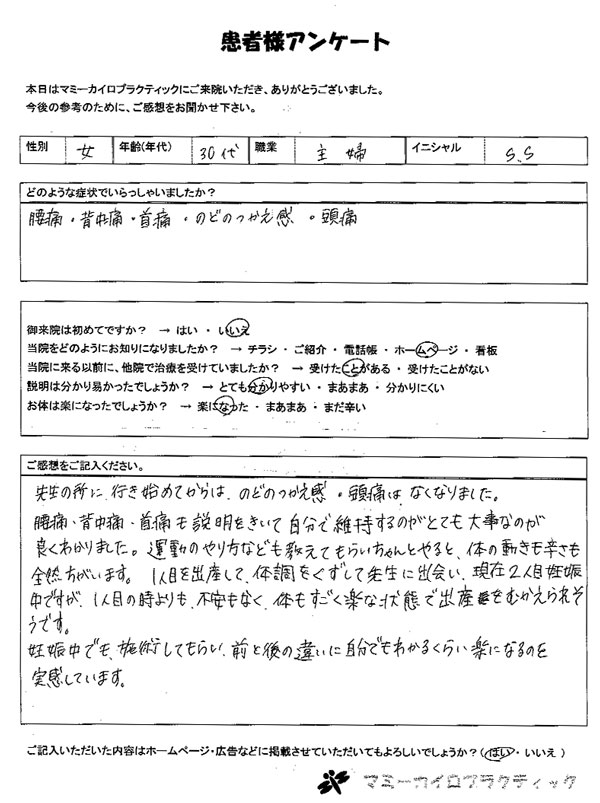 患者様アンケート
本日はマミーカイロプラクティックにご来院いただき、ありがとうございました。
今後の参考のために、ご感想をお聞かせ下さい。
性別 女 年齢(年代) 30代 職業 主婦 イニシャル S.S
どのような症状でいらっしゃいましたか？
腰痛・背中痛・首痛・のどのつかえ感・頭痛
御来院は初めてですか？ → はい ・ いいえ
当院をどのようにお知りになりましたか？ → チラシ ・ ご紹介 ・ 電話帳 ・ ホームページ ・ 看板
当院に来る以前に、他院で治療を受けていましたか？ → 受けたことがある ・ 受けたことがない
説明は分かり易かったでしょうか？ → とても分かりやすい ・ まあまあ ・ 分かりにくい
お体は楽になったでしょうか？ → 楽になった ・ まあまあ ・ まだ辛い
ご感想をご記入ください。
先生の所に、行き始めてからは、のどのつかえ感・頭痛は なくなりました。
腰痛・背中痛・首痛も説明をきいて自分で維持するのがとても大事なのが
良くわかりました。運動のやり方なども教えてもらいちゃんとやると、体の動きも辛さも
全然ちがいます。 1人目を出産して、体調をくずして先生に出会い、現在2人目妊娠
中ですが、1人目の時よりも、不安もなく、体もすごく楽な状態で出産をむかえられそ
うです。
妊娠中でも、施術してもらい、前と後の違いに自分でもわかるくらい楽になるのを
実感しています。
ご記入いただいた内容はホームページ・広告などに掲載させていただいてもよろしいでしょうか？（はい ・ いいえ ）
マミーカイロプラクティック